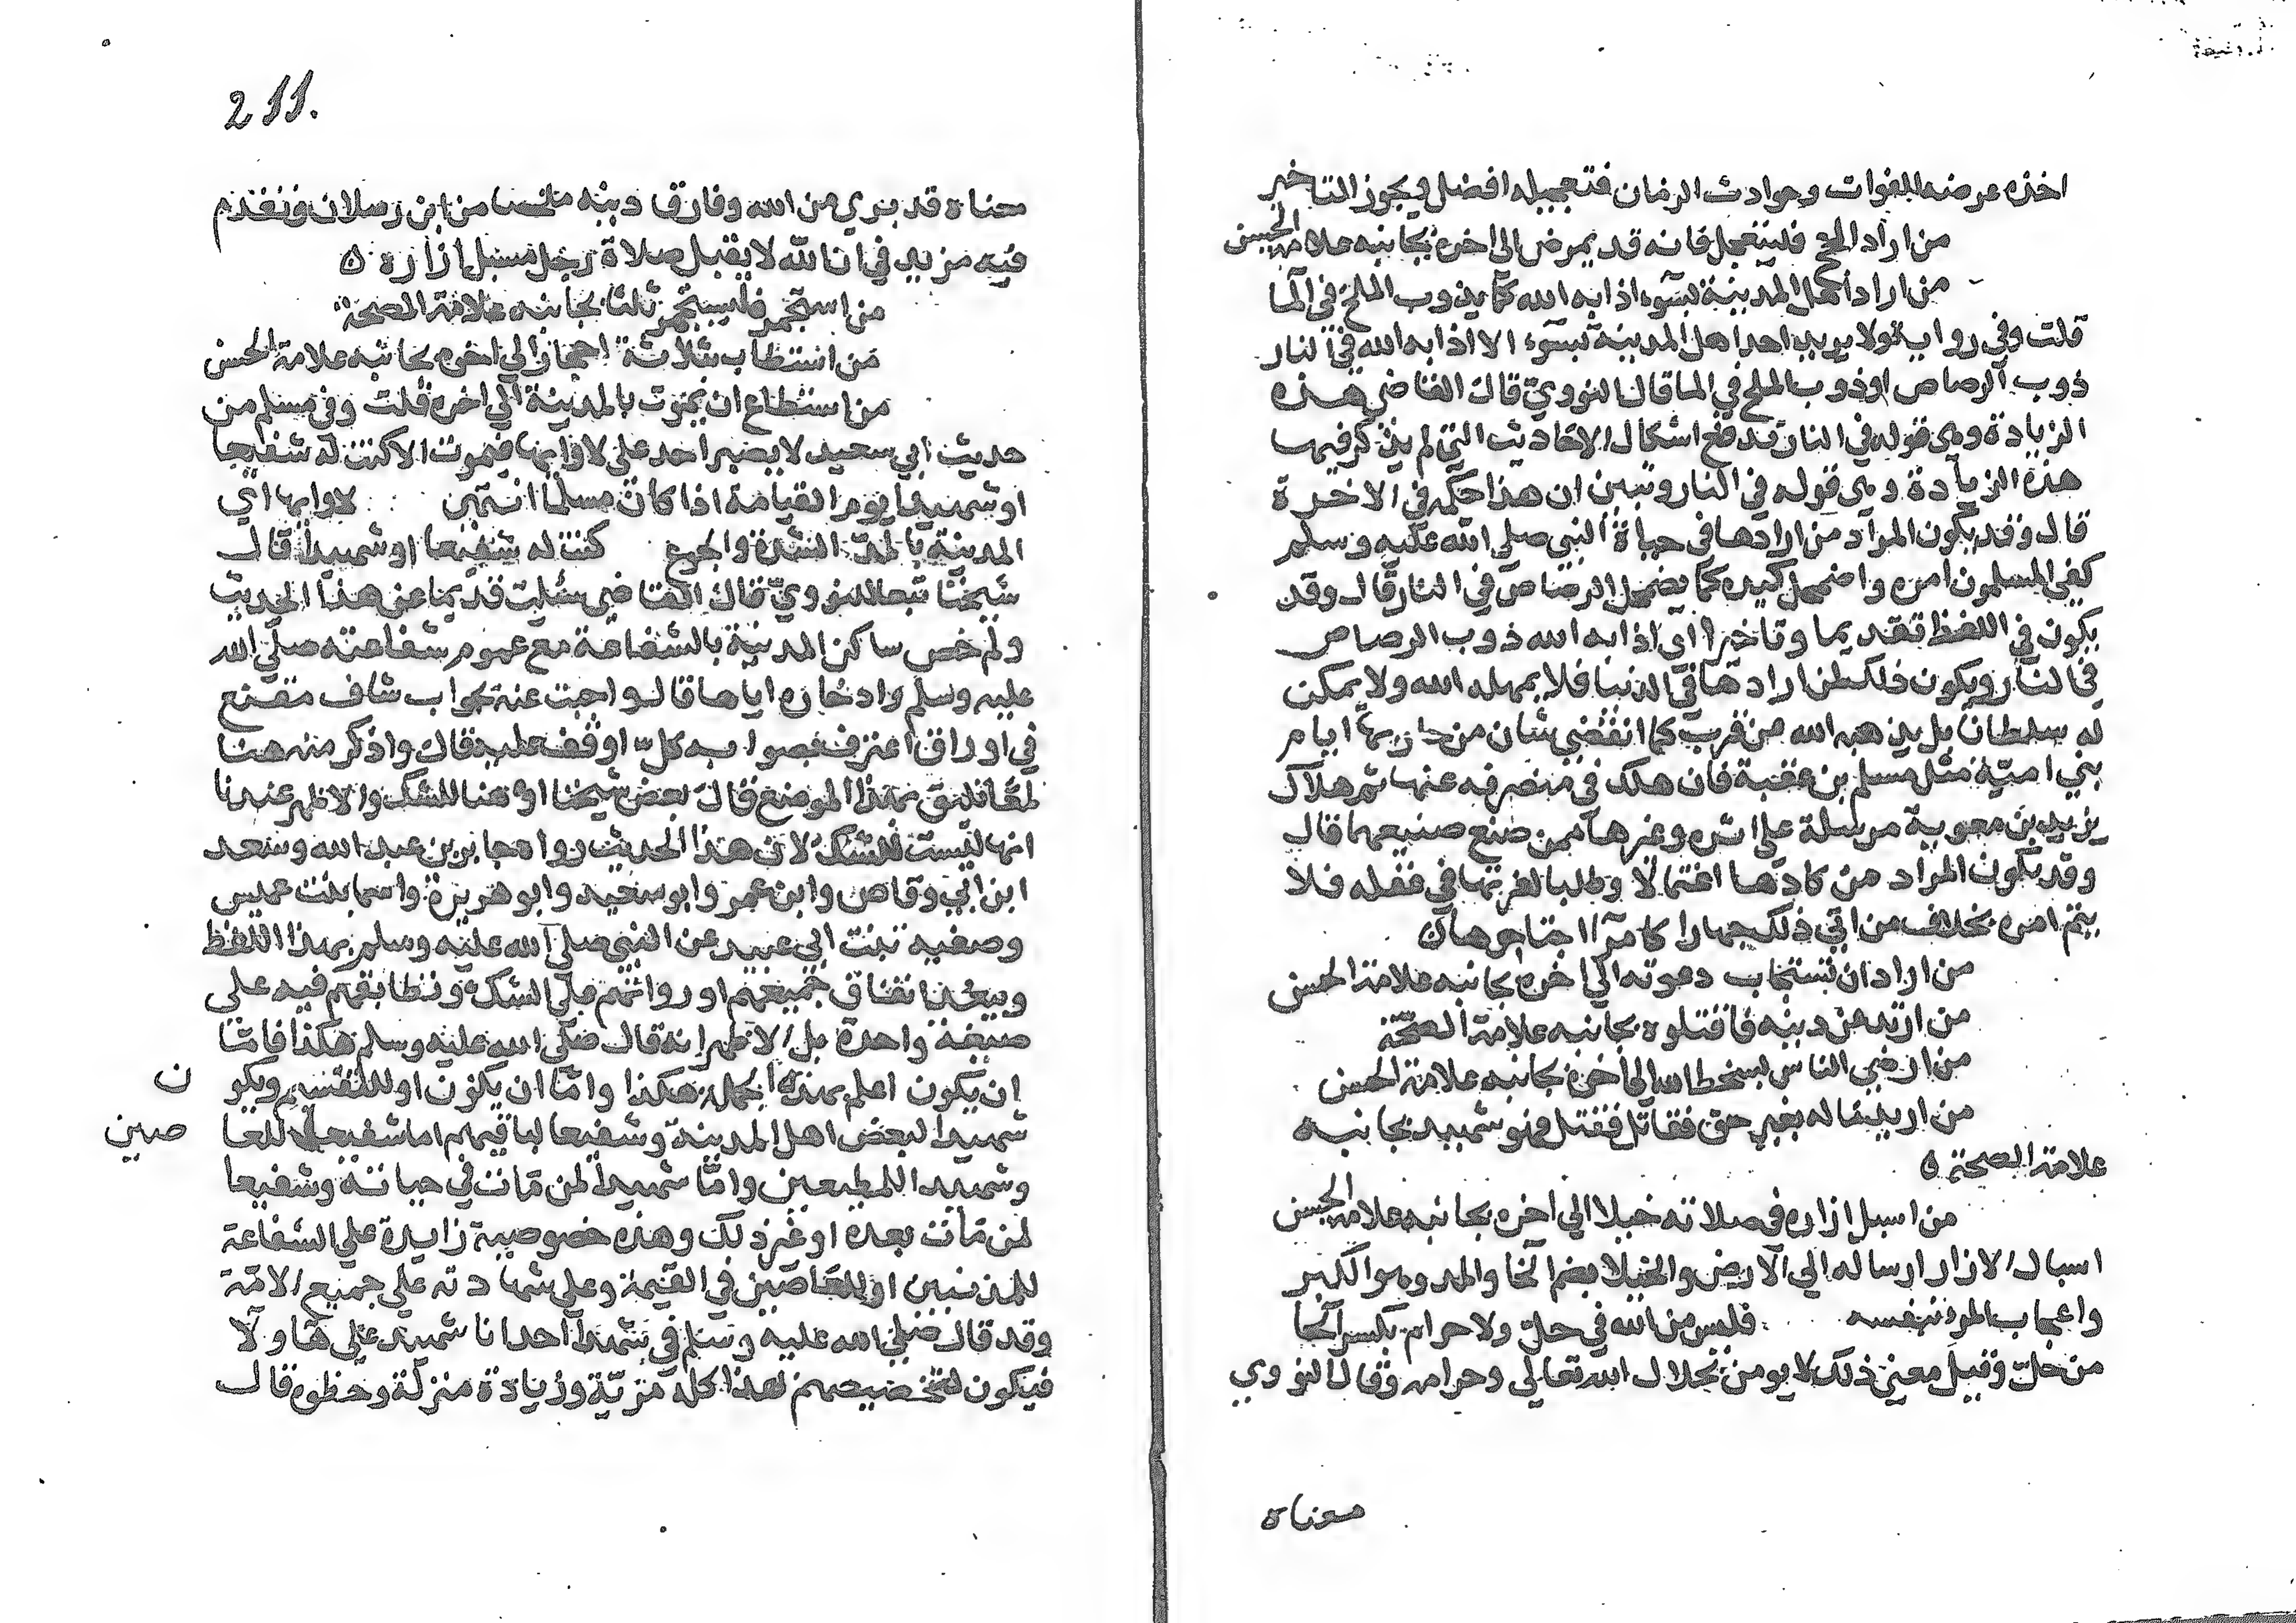 اخذه عرضه للفوات وحوادث الزمان فتعجيله افضل ويجوز التاخير
من اراد الحج فليتعجل فانه قد يمرض الى اخره بجانبه علامة الحسن
من اراد اهل المدينة بسوء اذابه الله كما يذوب الملح في الما
قلت وفي رواية ولا يريد احد اهل المدينة بسوء الا اذابه الله في النار
ذوب الرصاص او ذوب الملح في الما قال النووي قال القاضي هذه
الزيادة وهى قوله في النار تدفع اشكال الاحاديث التي لم يذكر فيها
هذه الزيادة وهى قوله في النار وتبين ان هذا حكمه في الاخرة
قال وقد يكون المراد من ارادها في حياة النبي صلى الله عليه وسلم
كفي المسلمون امره واضمحل كيده كما يضمحل الرصاص في النار قال وقد
يكون في اللفظ تقديما وتاخيرا اي اذابه الله ذوب الرصاص
في النار ويكون ذلك لمن ارادها في الدنيا فلا يمهله الله ولا يمكن
له سلطان بل يذهبه الله من قرب كما انقضي شان من حاربها ايام
بني امية مثل مسلم بن عقبة فان هلك في منصرفه عنها ثم هلاك
يزيد بن معوية مرسله على اثره وغيرهما ممن صنع صنيعهما قال
وقد يكون المراد من كادها اغتيالا وطلبا لغرتها في غفله فلا
يتم امره بخلاف من اتي ذلك جهارا كامرا اجتاحوها
من اراد ان تستجاب دعوته الى اخره بجانبه علامة الحسن
من ارتد عن دينه فاقتلوه بجانبه علامة الصحة
من ارضي الناس بسخط الله الى اخره بجانبه علامة الحسن
من اريد ماله بغير حق فقاتل فقتل فهو شهيد بجانبه
علامة الصحة ه
من اسبل ازاره في صلاته خيلا الي اخره بجانبه علامة الحسن
اسبال الازار ارساله الي الارض والخيلا بضم الخا والمد وهو الكبر
واعجاب المرء بنفسه فليس من الله في حل ولا حرام بكسر الحا
من حل وقيل معنى ذلك لا يومن بحلال الله تعالى وحرامه وقال النووي
معناه
211.
معناه قد بري من الله وفارق دينه ملخصا من ابن رسلان وتقدم
فيه مزيد في ان الله لا يقبل صلاة رجل مسبل ازاره ه
من استجمر فليستجمر ثلثا بجانبه علامة الصحة
من استطاب بثلاثة احجار الي اخره بجانبه علامة الحسن
من استطاع ان يموت بالمدينة الي اخره قلت وفي مسلم من
حديث ابي سعيد لا يصبر احد على لاوايها فيموت الا كنت له شفيعا
او شهيدا يوم القيامة اذا كان مسلما انتهى لاوايها اي
المدينة بالمد الشدة والجوع كنت له شفيعا او شهيدا قال
شيخنا تبعا للنووي قال القاضي سئلت قديما عن هذا الحديث
ولم خص ساكن المدينة بالشفاعة مع عموم شفاعته صلى الله
عليه وسلم وادخاره اياها قال واجبت عنه بجواب شاف مقنع
في اوراق اعترف بصوابه كل اوقف عليه قال واذكر منه هنا
لمعا تليق بهذا الموضع قال بعض شيوخنا او هنا للشك والاظهر عندنا
انها ليست للشك لان هذا الحديث رواه جابر بن عبد الله وسعد
ابن ابي وقاص وابن عمر وابو سعيد وابو هريرة واسما بنت عميس
وصفيه بنت ابي عبيد عن النبي صلى الله عليه وسلم بهذا اللفظ
ويبعد اتفاق جميعهم او رواتهم على الشك وتطابقهم فيه على
صيغة واحدة بل الاظهر انه قال صلى الله عليه وسلم هكذا فاما
ان يكون اعلم بهذه الجمل هكذا واما ان يكون او للتقسيم ويكون
شهيدا لبعض اهل المدينة وشفيعا لباقيهم اما شفيعا للعاصين
وشهيدا للمطيعين واما شهيدا لمن مات في حياته وشفيعا
لمن مات بعده او غير ذلك وهذه خصوصية زايدة على الشفاعة
للمذنبين او للعاصين في القيمة وعلى شهادته على جميع الامة
وقد قال صلى الله عليه وسلم في شهدا احد انا شهيد على هاولا
فيكون لتخصيصهم بهذا كله مزية وزيادة منزلة وحظوه قال